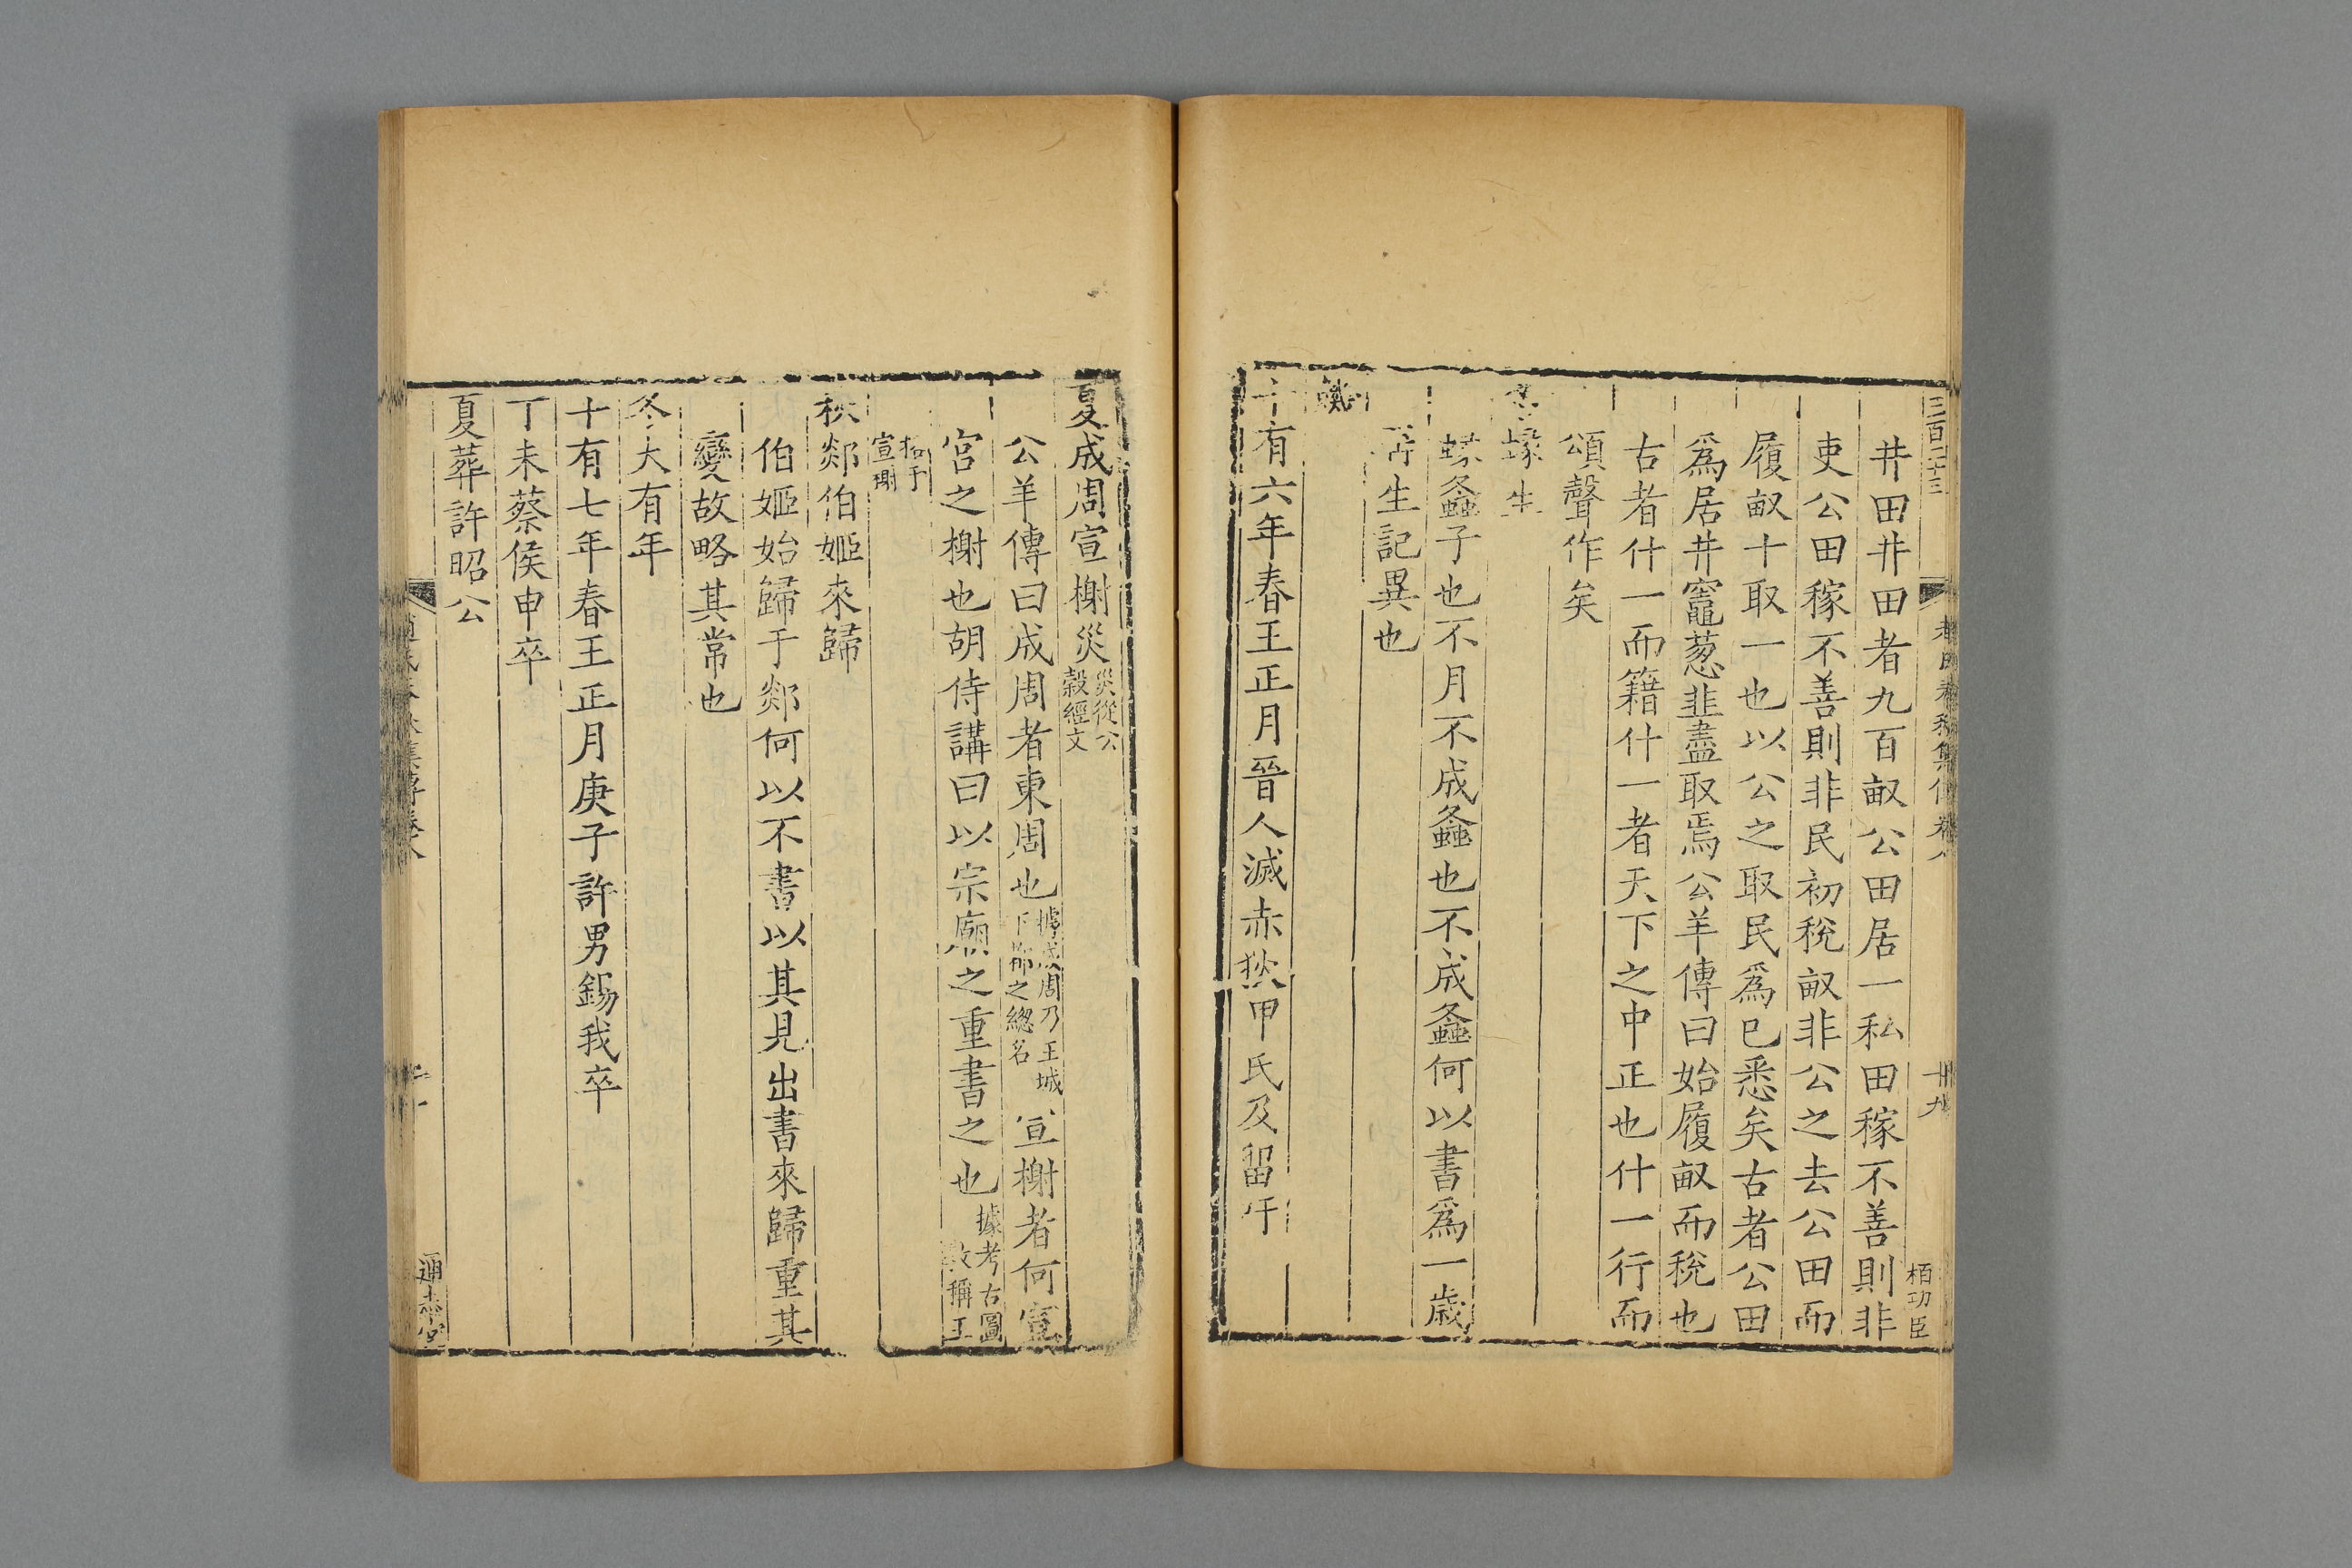 三百二十三
廿九
栢功臣
井田井田者九百畝公田居一私田稼不善則非
吏公田稼不善則非民初稅畝非公之去公田而
履畝十取一也以公之取民爲已悉矣古者公田
爲居井竈葱韭盡取焉公羊傳曰始履畝而稅也
古者什一而籍什一者天下之中正也什一行而
頌聲作矣
冬蝝生
蝝螽子也不月不成螽也不成螽何以書爲一歲
再生記異也
饑
十有六年春王正月晉人滅赤狄甲氏及留吁
夏成周宣榭災災從公穀經文
公羊傳曰成周者東周也據成周乃王城下都之總名宣榭者何宣
宮之榭也胡侍講曰以宗廟之重書之也據考古圖敦稱王
格于宣榭
秋郯伯姬來歸
伯姬始歸于郯何以不書以其見出書來歸重其
變故略其常也
冬大有年
十有七年春王正月庚子許男錫我卒
丁未蔡侯申卒
夏葬許昭公
通志堂